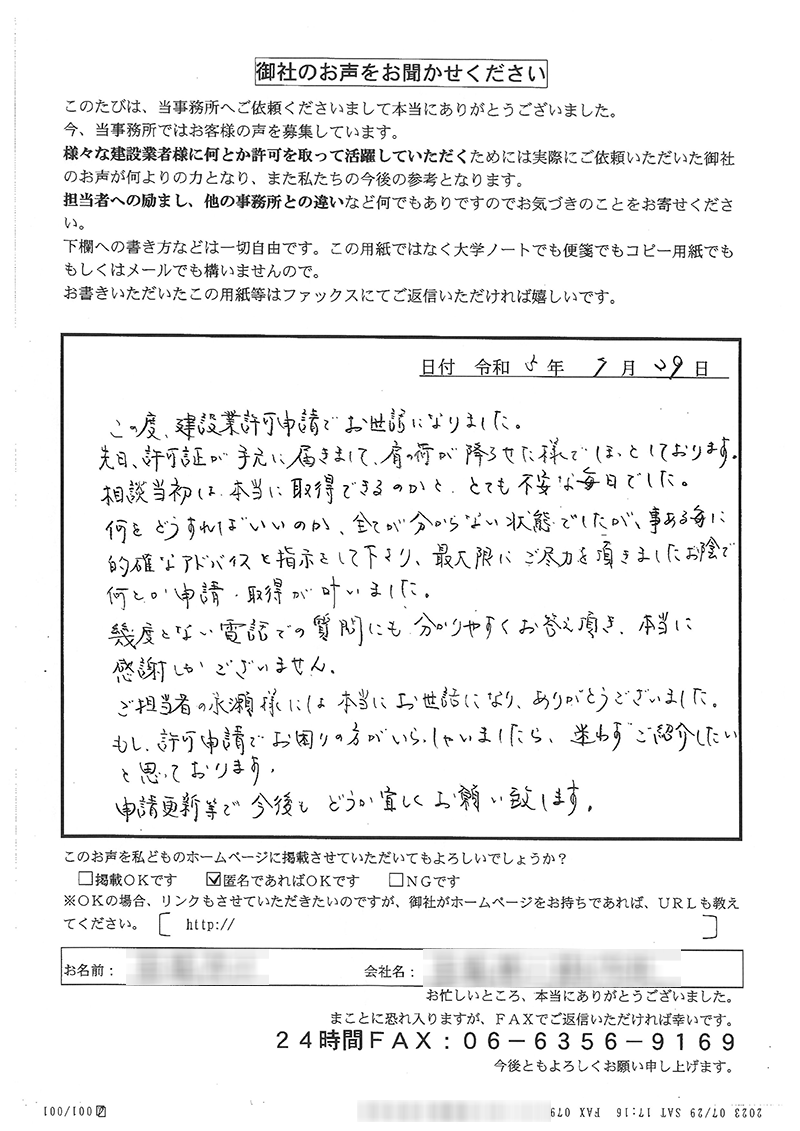 御社のお声をお聞かせください
このたびは、当事務所へご依頼くださいまして本当にありがとうございました。
今、当事務所ではお客様の声を募集しています。
様々な建設業者様に何とか許可を取って活躍していただくためには実際にご依頼いただいた御社
のお声が何よりの力となり、また私たちの今後の参考となります。
担当者への励まし、他の事務所との違いなど何でもありですのでお気づきのことをお寄せくださ
い。
下欄への書き方などは一切自由です。この用紙ではなく大学ノートでも便箋でもコピー用紙でも
もしくはメールでも構いませんので。
お書きいただいたこの用紙等はファックスにてご返信いただければ嬉しいです。
日付 令和 5 年 7 月 29 日
この度、建設業許可申請でお世話になりました。
先日、許可証が手元に届きまして、肩の荷が降ろせた様でほっとしております。
相談当初は、本当に取得できるのかと、とても不安な毎日でした。
何をどうすればいいのか、全てが分からない状態でしたが、事ある毎に
的確なアドバイスと指示をして下さり、最大限にご尽力を頂きましたお陰で
何とか申請・取得が叶いました。
幾度とない電話での質問にも分かりやすくお答え頂き、本当に
感謝しかございません。
ご担当者の永瀬様には本当にお世話になり、ありがとうございました。
もし、許可申請でお困りの方がいらっしゃいましたら、迷わずご紹介したい
と思っております。
申請更新等で今後もどうか宜しくお願い致します。
このお声を私どものホームページに掲載させていただいてもよろしいでしょうか？
□掲載OKです ☑匿名であればOKです □NGです
※OKの場合、リンクもさせていただきたいのですが、御社がホームページをお持ちであれば、URLも教え
てください。[ http:// ]
お名前： 会社名：
お忙しいところ、本当にありがとうございました。
まことに恐れ入りますが、FAXでご返信いただければ幸いです。
24時間FAX：06-6356-9169
今後ともよろしくお願い申し上げます。
2023 07/29 SAT 17:16 FAX 079
001/001